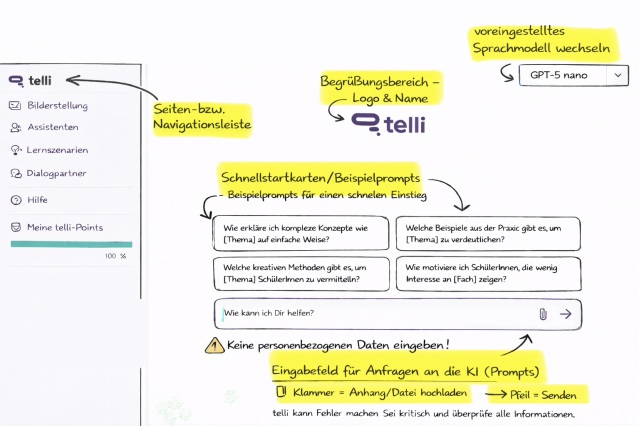 voreingestelltes
Sprachmodell wechseln
GPT-5 nano
telli
Bilderstellung
Assistenten
Lernszenarien
Dialogpartner
Hilfe
Meine telli-Points
100 %
Seiten-bzw.
Navigationsleiste
Begrüßungsbereich –
Logo & Name
telli
Schnellstartkarten/Beispielprompts
- Beispielprompts für einen schnellen Einstieg
Wie erkläre ich kompleze Konzepte wie
[Thema] auf einfache Weise?
Welche Beispiele aus der Praxic gibt es, um
[Thema] zu verdeuttichen?
Welche kreativen Methoden gibt es, um
[Thema] SchülerInnen zu vermitteln?
Wie motiviere ich SchülerInnen, die wenig
Interesse an [Fach] zeigen?
Wie kann ich Dir helfen?
Keine personenbezogenen Daten eingeben!
Eingabefeld für Anfragen an die KI (Prompts)
Klammer = Anhang/Datei hochladen
Pfeil = Senden
telli kann Fehler machen Sei kritisch und überprüfe alle Informationen.